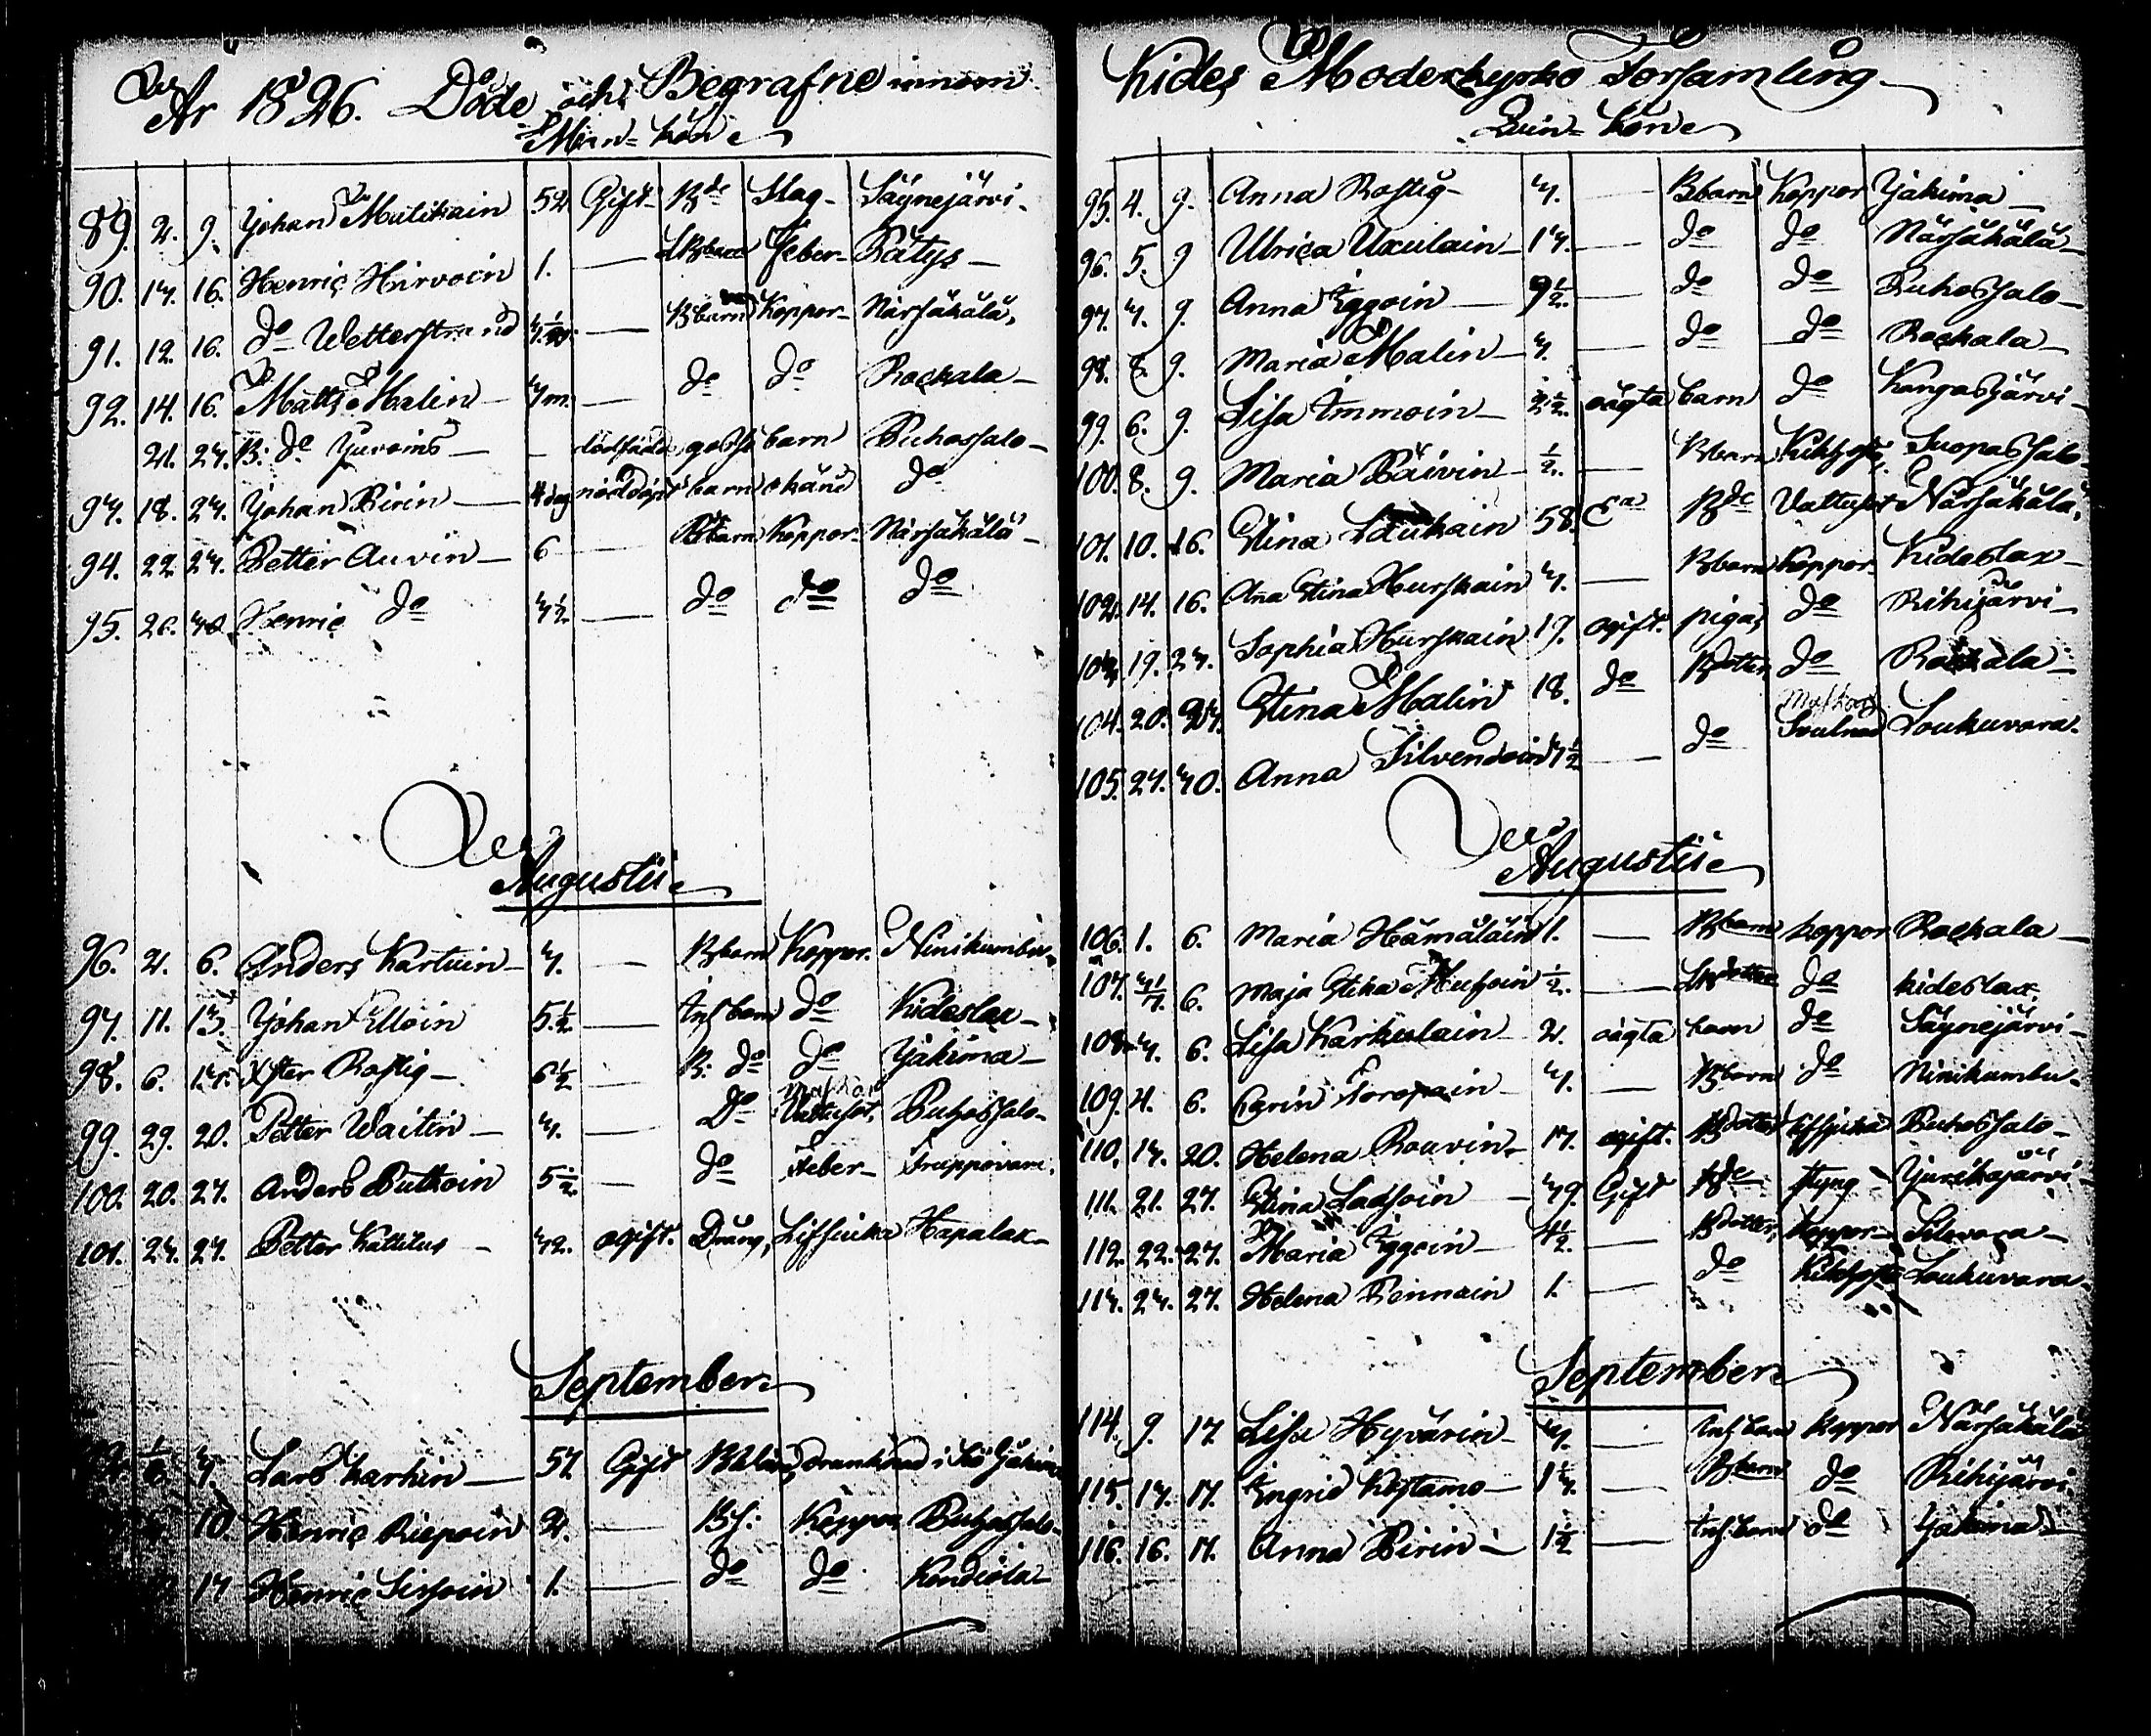 År 1826. Döde och Begrafne innom
Man-kön
89. 2. 9. Johan Mulikain 52 Gift Bde Slag- Säynejärvi.
90. 13. 16. Henric Hirvoin 1. — Feber- Rätys —
91. 12. 16. do Wetterstrand — Bbarn Koppor- Närsäkälä.
92. 14. 16. Matts Malin — 3 m. — do do Rockala —
21. 23. B: do Juvoins — — dödfödde gosse barn Puhossalo —
93. 18. 23. Johan Pirin — 4 dag nöddöpt barn okänd do
94. 22. 23. Petter Auvin — 6 — Bbarn Koppor- Närsäkälä —
95. 26. 30. Henric do 3½ — do do do
Augusti
96. 2. 6. Anders Kartuin — 3. — Bbarn Koppor. Niinikumbu
97. 11. 13. Johan Ulloin 5½ — Inh barn do Kideslax —
98. 6. 13. Xster Rostig — 6½ — B: do do Jakima —
99. 29. 20. Petter Waitin — 3. — Do Vattusot, Puhossalo —
100. 20. 27. Anders Putkoin 5½ — do Feber — Truppovara.
101. 23. 27. Petter Kattilus — 32. ogift. Dräng, Liffsucka Hapalax —
September
Lars Karhin — 57 Gift drunknad i Jakima
10. Henric Riepoin 2. — Bs: Koppor Puhossalo
17 Henric Sissoin 1. — do do Kendiola
Kides Moderkyrko Församling
Quin-kön
95. 4. 9. Anna Rostig — 3. — Bbarn Koppor Jakima —
96. 5. 9 Ulrica Uxulain — 13. — do do Närsäkälä —
97. 3. 9. Anna Iggoin — 9½. — do do Puhossalo —
98. 8. 9. Maria Malin — 3. — do do Rockala —
99. 6. 9. Lisa Immoin — 2½. oägta barn do Kangasjärvi —
100. 8. 9. Maria Päivin — ½. — Bbarn Kikhosta Suopassalo
101. 10. 16. Stina Laukain 58. Ea Bde Vattusot Närsäkälä.
102. 14. 16. Ana Stina Hurskain 3. — Bbarn Koppor- Kideslax —
103. 19. 23. Sophia Hurskain 19. ogift. piga, do Rihijärvi —
104. 20. 23. Stina Malin 18. do Bdotter do Rockala —
105. 27. 30. Anna Silvendoin — do Loukuvara.
Augusti
106. 1. 6. Maria Hämäläin 1. — Bbarn koppor Rockala —
107. 31/7. 6. Maja Stina ½. — do kideslax.
108. 3. 6. Lisa Karhulain — 2. oägta barn do Säynejärvi —
109. 4. 6. Carin Toropain — 3. — Bbarn do Niinikumbu —
110. 13. 20. Helena Rouvin — 17. ogift. Bdotter Liffsucka Puhossalo —
111. 21. 27. Stina Ladsoin — 39. Gift Bde styng — Jurikajärvi —
112. 22. 27. Maria Iggoin — 4½. — Bdotter, koppor — Silovara —
113. 23. 27. Helena Rennain 1. — do Kikhosta Loukuvara —
September
114. 9. 17 Lisa Hyvärin — 3. — Inh barn koppor Närsäkälä
115. 13. 17. Ingrid Kostamo — — Bbarn do Rihijärvi
116. 16. 17. Anna Pirin — 1½ — Inh. barn do Jakima